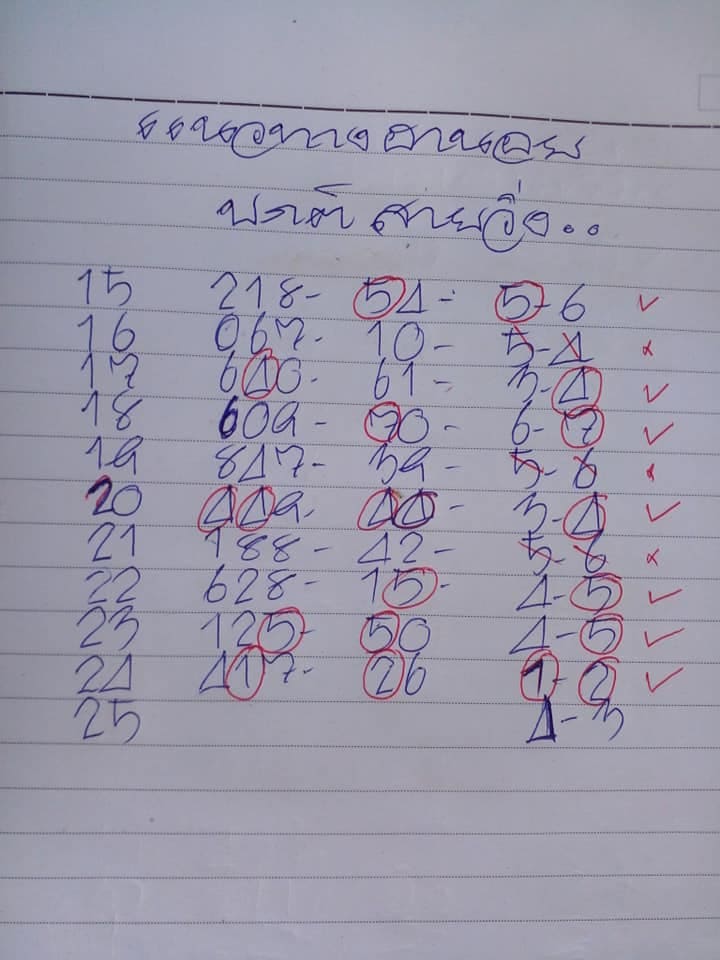 แนวทางฮานอย
ปกติ สายวิ่ง..
15 218- 54- 5-6 ✓
16 067- 10- 5-4 ×
17 640- 61- 3-4 ✓
18 609- 70- 6-7 ✓
19 847- 39- 5-6 ×
20 449- 44- 3-4 ✓
21 188- 42- 5-6 ×
22 628- 15- 4-5 ✓
23 125- 50 4-5 ✓
24 417- 26 1-2 ✓
25 4-3